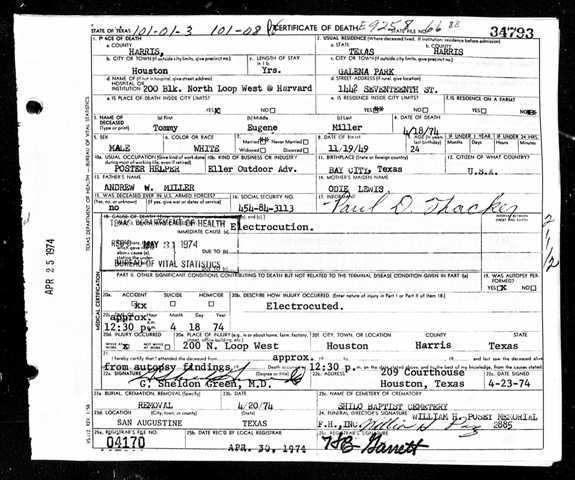 STATE OF TEXAS 101-01-3 101-08 CERTIFICATE OF DEATH E9258 STATE FILE NO. 66 34793
1. PLACE OF DEATH
2. USUAL RESIDENCE (Where deceased lived. If institution: residence before admission)
a. COUNTY
HARRIS,
a. STATE
TEXAS
b. COUNTY
HARRIS
b. CITY OR TOWN (If outside city limits, give precinct no.)
Houston
c. LENGTH OF STAY in 1b.
Yrs.
c. CITY OR TOWN (If outside city limits, give precinct no.)
GALENA PARK
d. NAME OF (If not in hospital, give street address)
HOSPITAL OR
INSTITUTION 200 Blk. North Loop West @ Harvard
d. STREET ADDRESS (If rural, give location)
1442 SEVENTEENTH ST.
e. IS PLACE OF DEATH INSIDE CITY LIMITS?
YES NO
e. IS RESIDENCE INSIDE CITY LIMITS?
YES NO
f. IS RESIDENCE ON A FARM?
YES NO
3. NAME OF DECEASED (Type or print)
(a) First
Tommy
(b) Middle
Eugene
(c) Last
Miller
4. DATE OF DEATH
4/18/74
5. SEX
MALE
6. COLOR OR RACE
WHITE
7. Married Never Married
Widowed Divorced
8. DATE OF BIRTH
11/19/49
9. AGE
24
IF UNDER 1 YEAR
Months Days
IF UNDER 24 HRS.
Hours Min.
10a. USUAL OCCUPATION (Give kind of work done during most of working life, even if retired)
POSTER HELPER
10b. KIND OF BUSINESS OR INDUSTRY
Eller Outdoor Adv.
11. BIRTHPLACE (State or foreign country)
BAY CITY, Texas
12. CITIZEN OF WHAT COUNTRY?
U.S.A.
13. FATHER'S NAME
ANDREW W. MILLER
14. MOTHER'S MAIDEN NAME
ODIE LEWIS,
15. WAS DECEASED EVER IN U.S. ARMED FORCES?
(Yes, no, or unknown) (If yes, give war or dates of service)
no
16. SOCIAL SECURITY NO.
454-84-3113
17. INFORMANT
Paul D Thacker
18. CAUSE OF DEATH
TEXAS DEPARTMENT OF HEALTH
IMMEDIATE CAUSE (a)
Electrocution.
REC'D MAY 31 1974
DUE TO (b)
BUREAU OF VITAL STATISTICS
DUE TO (c)
INTERVAL BETWEEN ONSET AND DEATH
PART II. OTHER SIGNIFICANT CONDITIONS CONTRIBUTING TO DEATH BUT NOT RELATED TO THE TERMINAL DISEASE CONDITION GIVEN IN PART I(a)
19. WAS AUTOPSY PERFORMED?
YES NO
20a. ACCIDENT SUICIDE HOMICIDE
xx
20b. DESCRIBE HOW INJURY OCCURRED. (Enter nature of injury in Part I or Part II of Item 18.)
Electrocuted.
Hour Month Day Year
approx.
12:30 p.m. 4 18 74
20d. INJURY OCCURRED
20e. PLACE OF INJURY (e.g., in or about home, farm, factory, street, office building, etc.)
200 N. Loop West
20f. CITY, TOWN, OR LOCATION COUNTY STATE
Houston Harris Texas
21. I hereby certify that I attended the deceased from
approx.
and last saw the deceased alive
from autopsy findings. Death occurred at 12:30 p.m. on the date stated above, and to the best of my knowledge, from the causes stated.
22a. SIGNATURE (Degree or title)
G. Sheldon Green, M.D.
22b. ADDRESS
209 Courthouse
Houston, Texas
22c. DATE SIGNED
4-23-74
23a. BURIAL, CREMATION, REMOVAL (Specify)
REMOVAL
23b. DATE
4/20/74
23c. NAME OF CEMETERY OR CREMATORY
SHILO BAPTIST CEMETERY
23d. LOCATION (City, town, or county) (State)
SAN AUGUSTINE TEXAS
24. FUNERAL DIRECTOR'S SIGNATURE
WILLIAM H. PUSEY MEMORIAL
F.H., INC. 2885
25a. REGISTRAR'S FILE NO.
04170
25b. DATE REC'D BY LOCAL REGISTRAR
APR. 30, 1974
25c. REGISTRAR'S SIGNATURE
Garrett
TEXAS DEPARTMENT OF HEALTH - BUREAU OF VITAL STATISTICS
MEDICAL CERTIFICATION
APR 25 1974